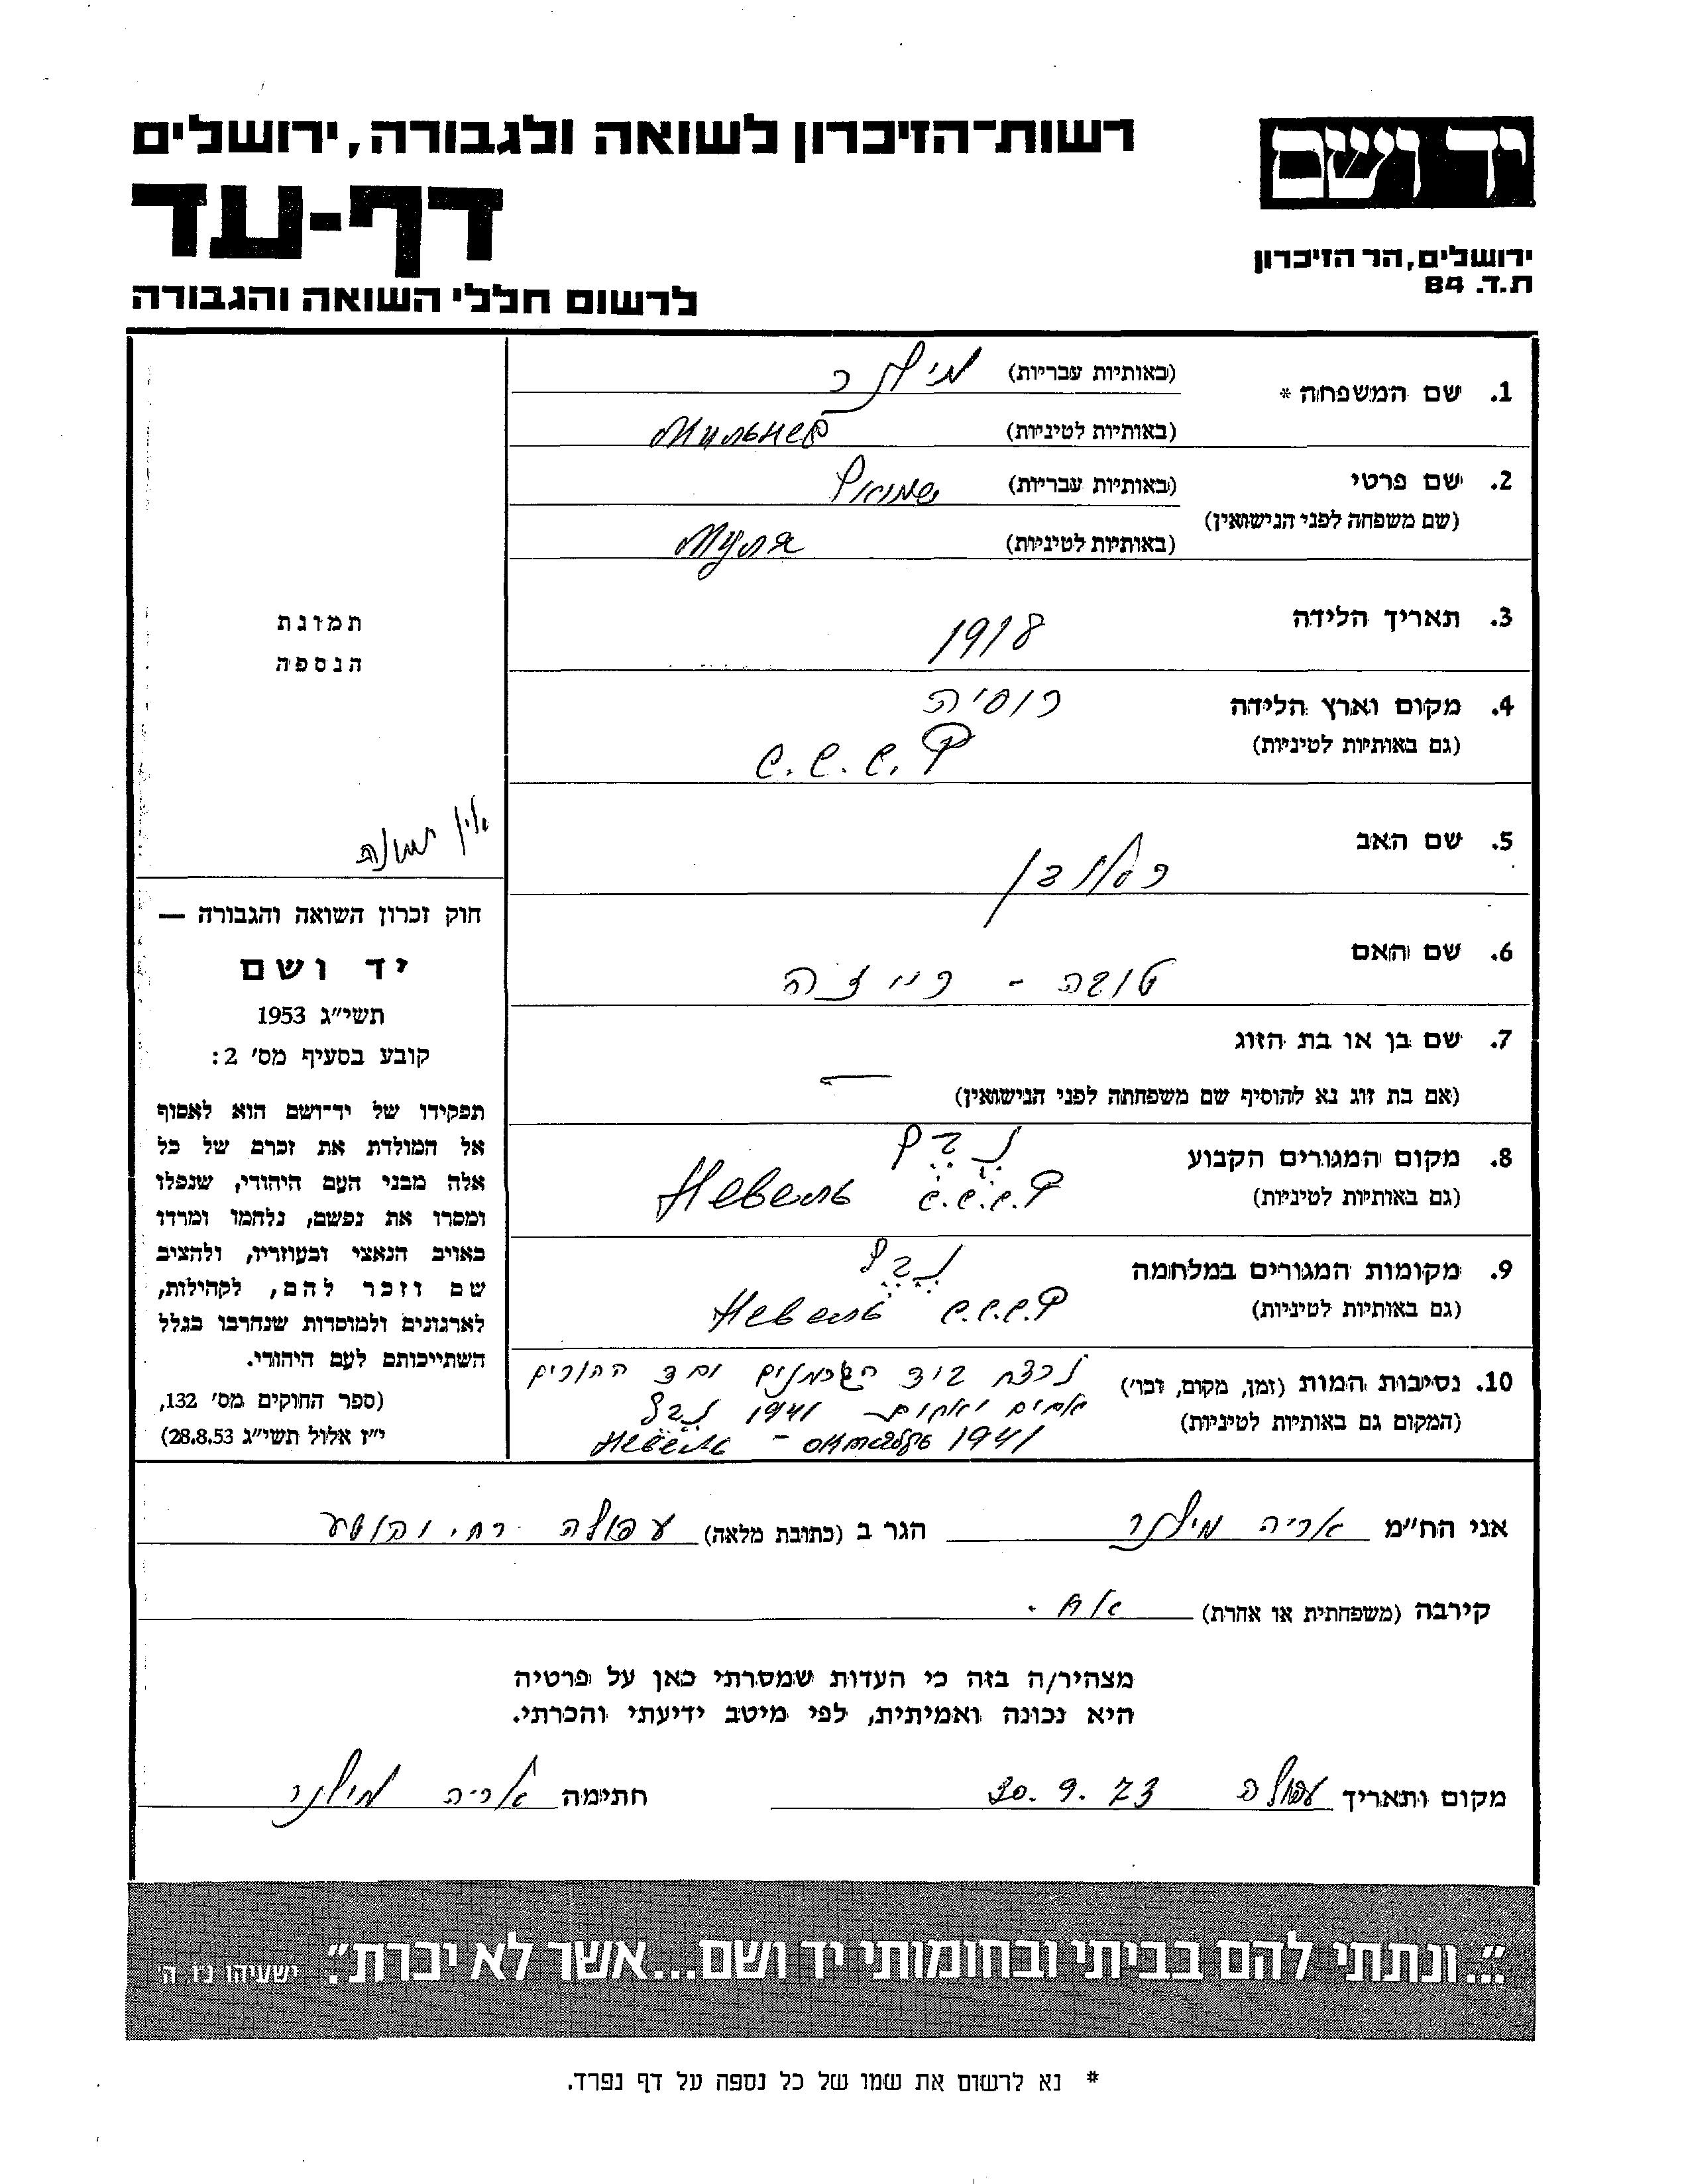 יד ושם
ירושלים, הר הזיכרון
ת.ד. 84
רשות-הזיכרון לשואה ולגבורה, ירושלים
דף-עד
לרשום חללי השואה והגבורה
1. שם המשפחה * (באותיות עבריות) מילנר
(באותיות לטיניות) Мильнер
2. שם פרטי (באותיות עבריות) שמואל
(שם משפחה לפני הנישואין)
(באותיות לטיניות)
3. תאריך הלידה 1918
4. מקום וארץ הלידה רוסיה
(גם באותיות לטיניות) С.С.С.Р
5. שם האב ראובן
6. שם האם טובה - רייזה
7. שם בן או בת הזוג
(אם בת זוג נא להוסיף שם משפחתה לפני הנישואין) —
8. מקום המגורים הקבוע נבל
(גם באותיות לטיניות) С.С.С.Р
9. מקומות המגורים במלחמה נבל
(גם באותיות לטיניות) С.С.С.Р
10. נסיבות המות (זמן, מקום, וכו') נרצח ביד הגרמנים יחד ההורים
(המקום גם באותיות לטיניות) אחים ואחות - 1941 נבל
1941
תמונת
הנספה
אין תמונה
חוק זכרון השואה והגבורה —
יד ושם
תשי"ג 1953
קובע בסעיף מס' 2:
תפקידו של יד-ושם הוא לאסוף
אל המולדת את זכרם של כל
אלה מבני העם היהודי, שנפלו
ומסרו את נפשם, נלחמו ומרדו
באויב הנאצי ובעוזריו, ולהציב
שם וזכר להם, לקהילות,
לארגונים ולמוסדות שנחרבו בגלל
השתייכותם לעם היהודי.
(ספר החוקים מס' 132,
י"ז אלול תשי"ג 28.8.53)
אני הח"מ אריה מילנר הגר ב (כתובת מלאה) עפולה רח' יהושע
קירבה (משפחתית או אחרת) אח.
מצהיר/ה בזה כי העדות שמסרתי כאן על פרטיה
היא נכונה ואמיתית, לפי מיטב ידיעתי והכרתי.
מקום ותאריך עפולה 30.9.73 חתימה אריה מילנר
"...ונתתי להם בביתי ובחומותי יד ושם...אשר לא יכרת". ישעיהו נ"ו, ה'
* נא לרשום את שמו של כל נספה על דף נפרד.